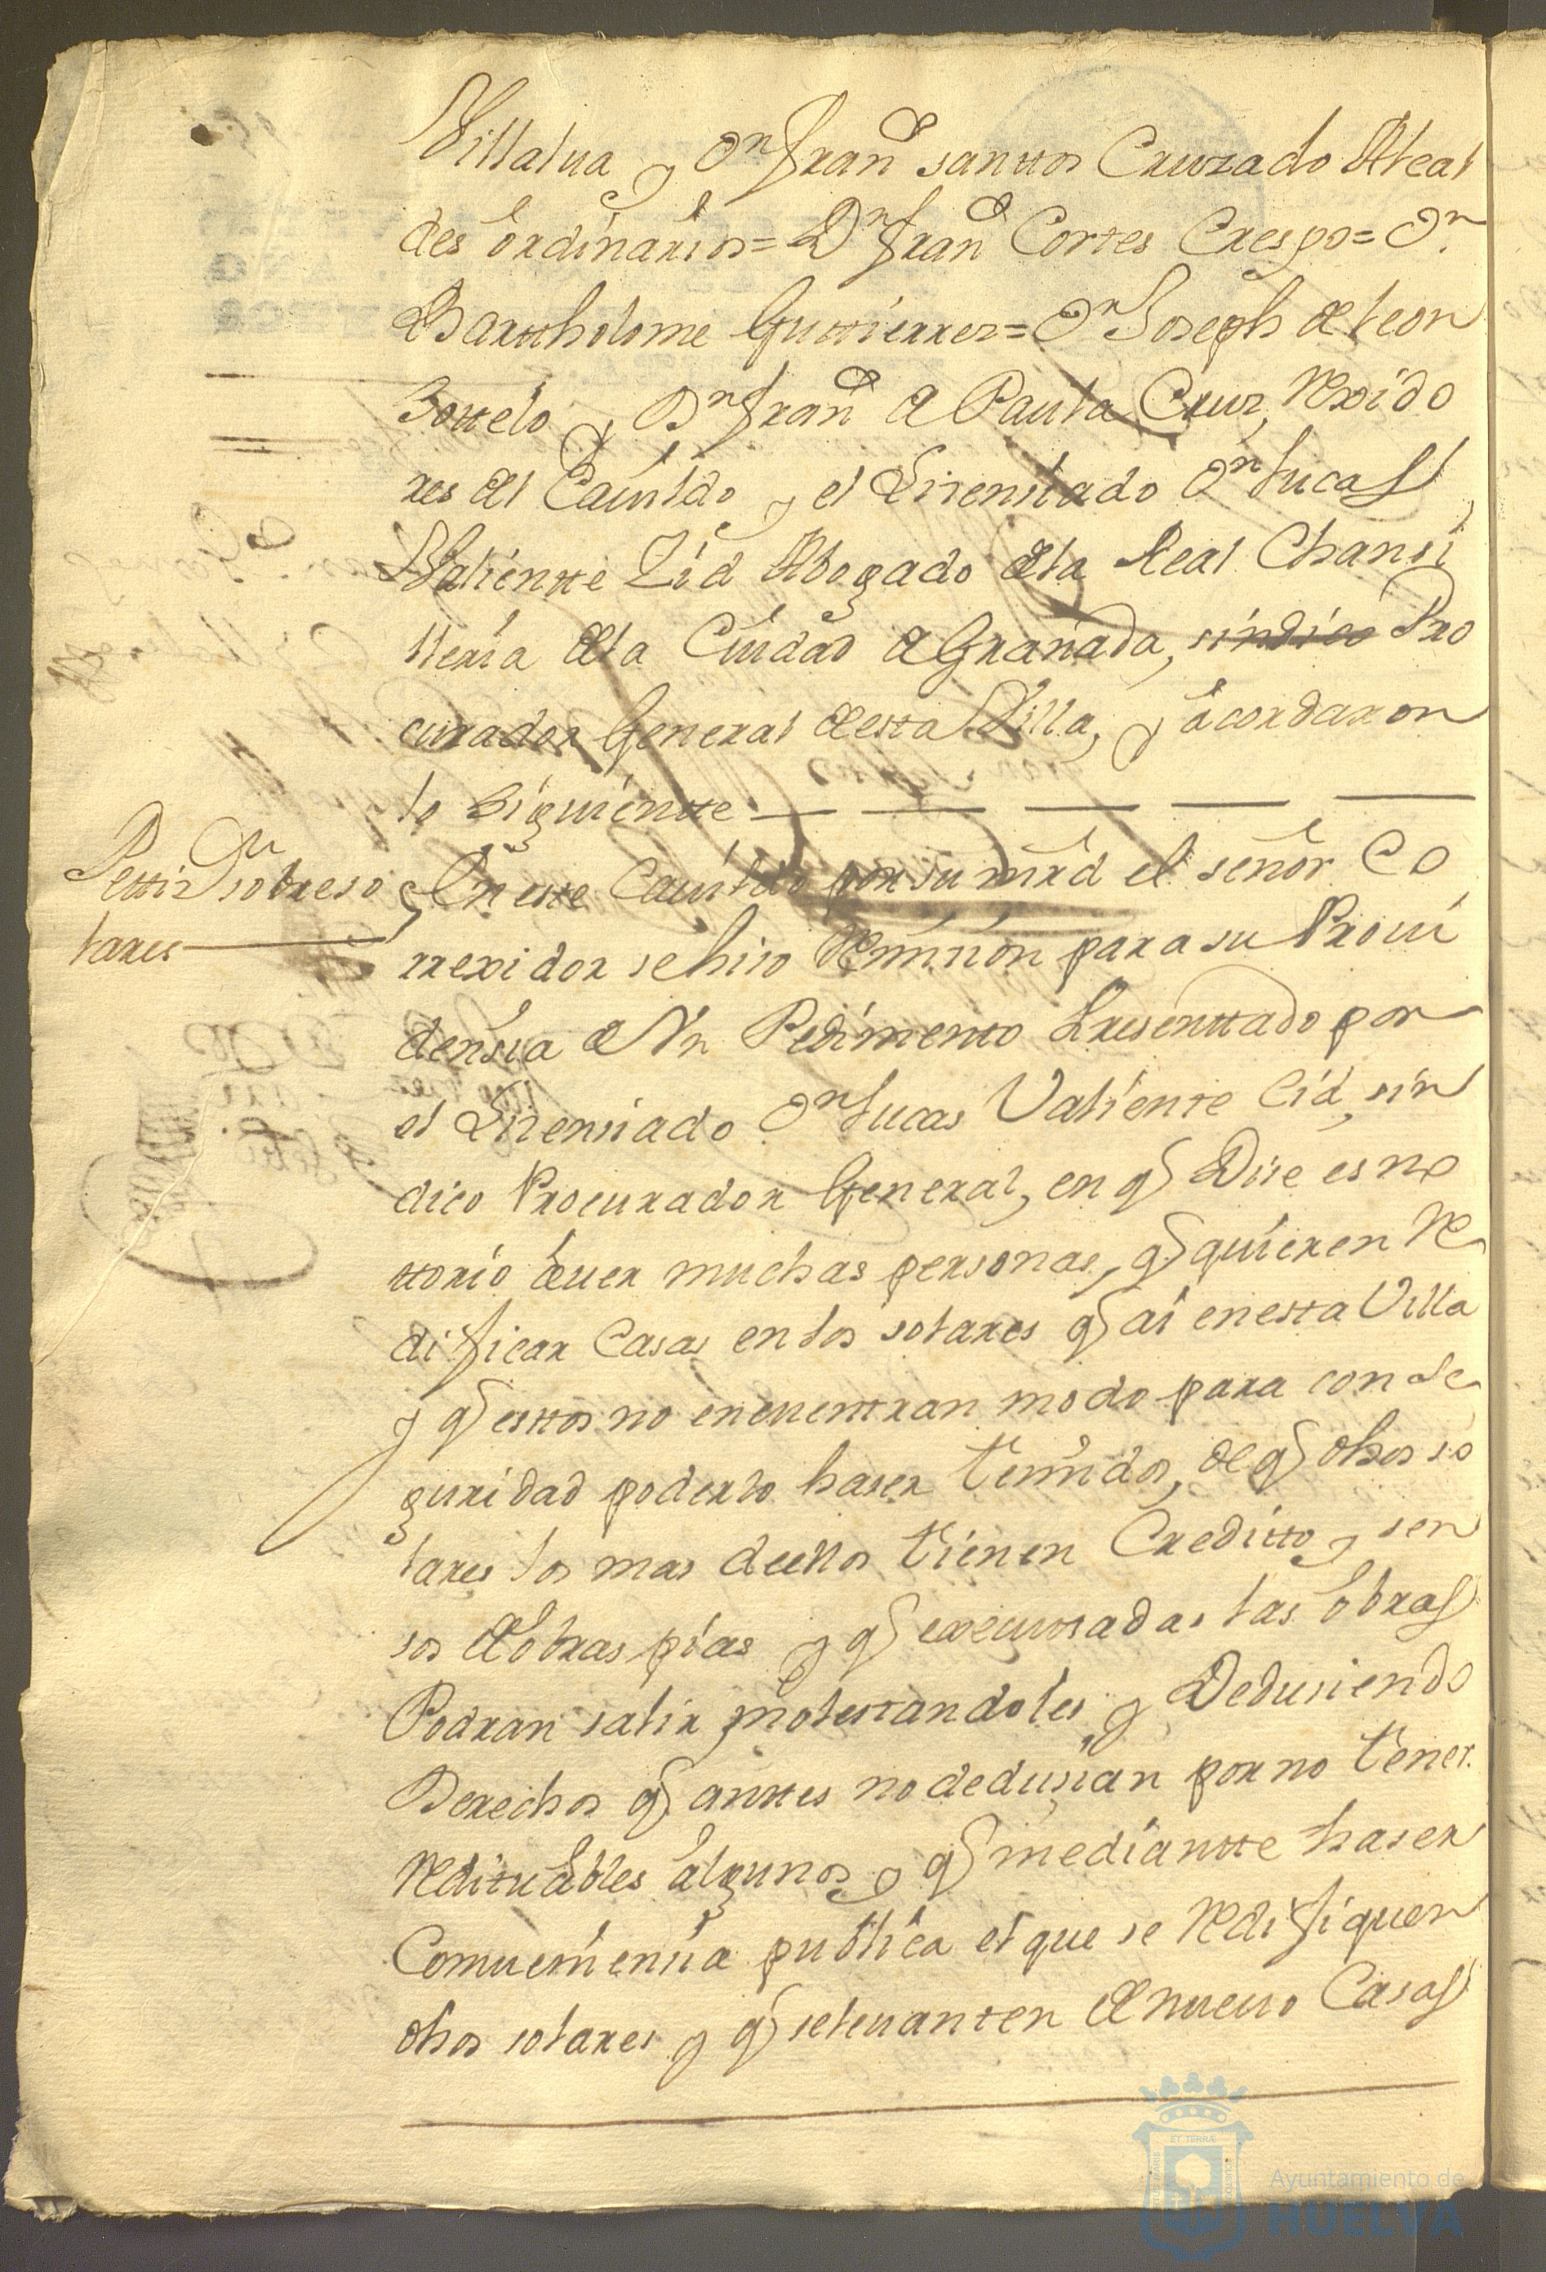 Villalua y Dn Franco santtos Cruzado Alcal
des ordinarios = Dn Franco Cortes Crespo = Dn
Bartthólome Guttierrez = Dn Joseph de Leon
Sottelo y Dn Franco de Paula Cruz, Rexido
res del Cauildo y el Lizensiado Dn Lucas
Valientte Zid Abogado de la Real Chansi
lleria de la Ciudad de Granada, sindico Pro
curador General de esta Villa, y acordaron
lo Siguientte
Pettizn sobre so
lares
En este Cauildo por su mrd el señor Co
rrexidor se hizo Remision para su Proui
densia de Un Pedimento Presenttado por
el Lizensiado Dn Lucas Valiente Cid, sin
dico Procurador General, en q Dize es no
ttorio auer muchas personas, q quieren Re
dificar Casas en los solares q ai en esta Villa
y q esttos no encuentran modo para con se
guridad poderlo haser temidos, de q dhos so
lares los mas de ellos tienen Creditto y sen
sos de obras pias y q executtadas las obras
Podran salir molestandoles y Dedusiendo
Derechos q anttes no dedusian por no tener
Redituables algunos y q mediantte haser
Comueniensia publica el que se Redifiquen
dhos solares y q se leuanten de nueuo Casas
ET TERRÆ
Ayuntamiento de
HUELVA